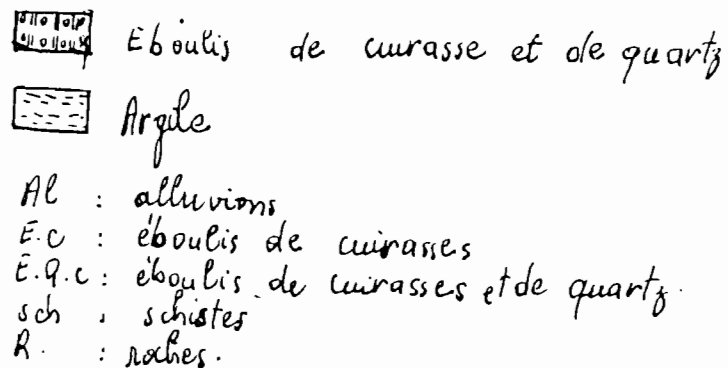 Eboulis de cuirasse et de quartz
Argile
Al : alluvions
E.c : éboulis de cuirasses
E.q.c : éboulis de cuirasses et de quartz.
sch : schistes
R. : roches.